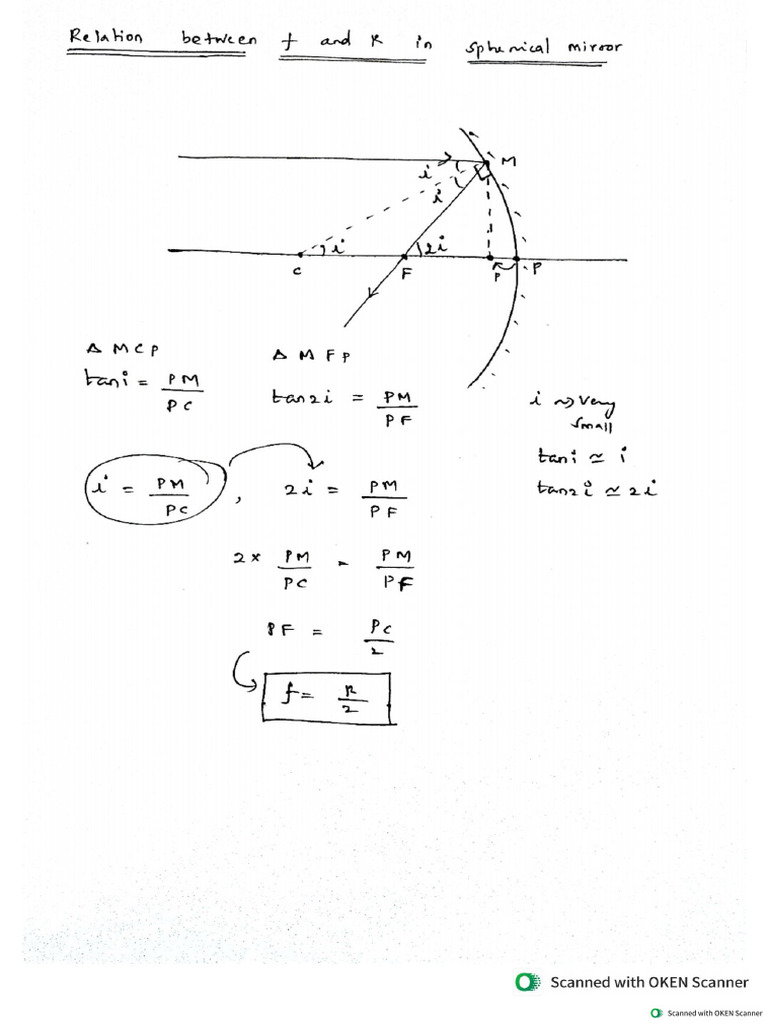 Relation between f and R in spherical mirror
M
i
i
i
2i
C
F
P
P
Δ MCP
Δ MFP
tan i = PM/PC
tan2i = PM/PF
i ~> very small
tan i ≃ i
tan2i ≃ 2i
i = PM/PC , 2i = PM/PF
2 × PM/PC = PM/PF
PF = PC/2
f = R/2
Scanned with OKEN Scanner
Scanned with OKEN Scanner